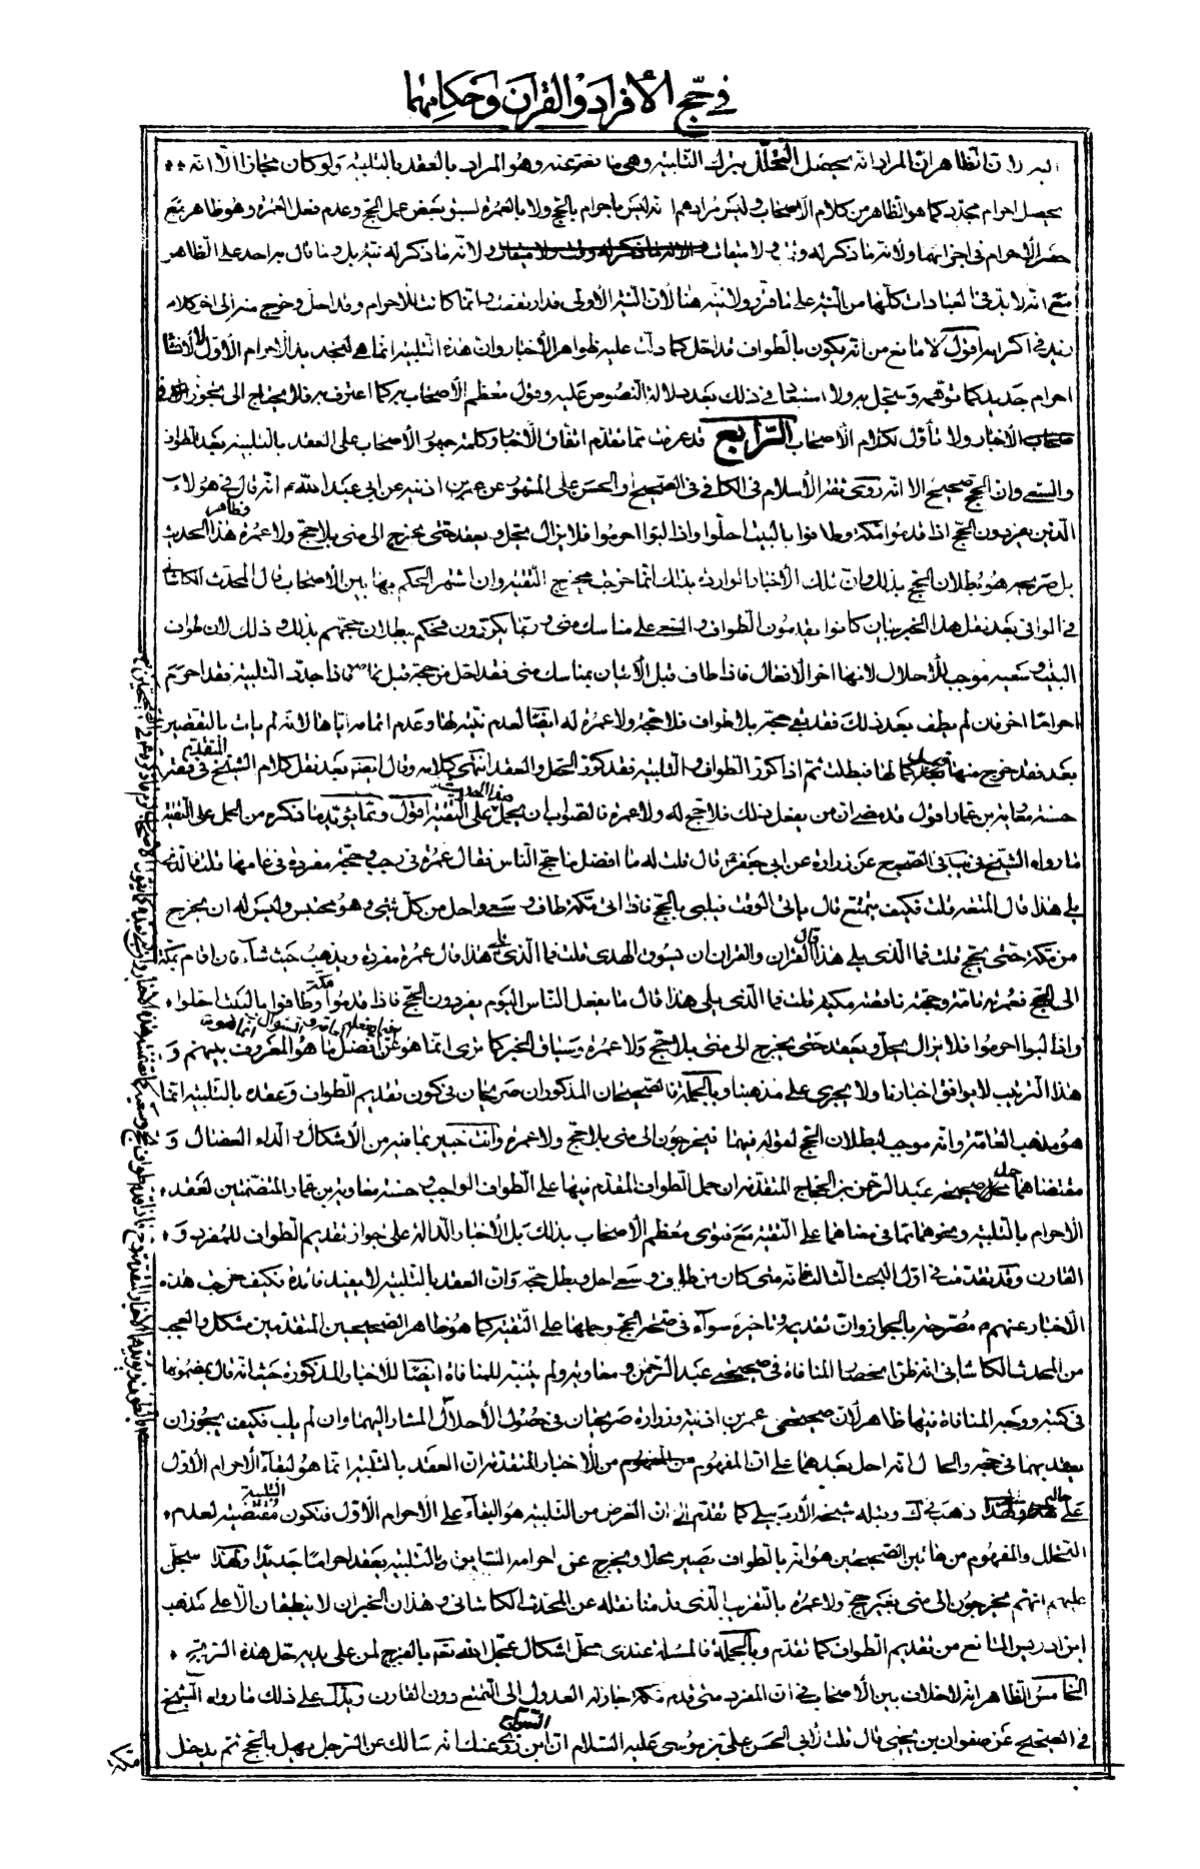 في حج الأفراد والقران واحكامهما
ان الظاهر ان المراد انه يحصل التحلل بترك التلبية وهي ما يعتبر عنه وهو المراد بالعقد بالتلبية ولو كان مجازا الا انه
يحصل احرام مجدد كما هو الظاهر من كلام الأصحاب وليس مرادهم انه ليس باحرام بالحج ولا بالعمرة لسبق بعض عمل الحج وعدم فعل العمرة وهو ظاهر مع
حصر الأحرام في اجزائهما ولانه ما ذكر له وقت ولا ميقات ولانه ما ذكر له نية بل وما قال به احد على الظاهر
مع انه لا بد في العبادات كلها من النية على ما قرر ولا نية هنا لان النية الأولى قد ارتفعت وانما كانت للاحرام وقد احل وخرج منه الى اخر كلامه
زيد في اكرامه اقول لا مانع من انه يكون بالطواف قد احل كما دلت عليه ظواهر الأخبار وان هذه التلبية انما هي لتجديد الأحرام الأول لا لانشاء
احرام جديد كما توهمه وسجل به ولا استبعاد في ذلك بعد دلالة النصوص عليه وقول معظم الأصحاب به كما اعترف به فلا يحتاج الى تجوز في
الأخبار ولا تأول لكلام الأصحاب الرابع قد عرفت مما تقدم اتفاق الأخبار وكلمة جمهور الأصحاب على العقد بالتلبية بعد الطواف
والسعي وان الحج صحيح الا انه روى ثقة الأسلام في الكافي في الصحيح او الحسن على المشهور عن عمر بن اذينة عن ابي عبد الله ع انه قال في هؤلاء
الذين يفردون الحج اذا قدموا مكة وطافوا بالبيت احلوا واذا لبوا احرموا فلا يزال يحل ويعقد حتى يخرج الى منى بلا حج ولا عمرة وظاهر هذا الحديث
بل صريحه هو بطلان الحج بذلك وان تلك الأخبار الواردة بذلك انما خرجت مخرج التقية وان اشتهر الحكم بها بين الأصحاب قال المحدث الكاشاني
في الوافي بعد نقل هذا الخبر بيان كانوا يقدمون الطواف والسعي على مناسك منى وربما يكررون فحكم ببطلان حجهم بذلك وذلك لان طواف
البيت وسعيه موجب للأحلال لانهما اخر الافعال فاذا طاف قبل الأتيان بمناسك منى فقد احل من حجه قبل تمامه فاذا جدد التلبية فقد احرم
احراما اخر فان لم يطف بعد ذلك فقد بقي حجه بلا طواف فلا حجة ولا عمرة له ايضا لعدم نيته لها وعدم اتمامه اياها لانه لم يات بالتقصير
بعد فقد خرج منها قبل كمالها فبطلت ثم اذا كرر الطواف والتلبية فقد كرر الحل والعقد انتهى كلامه وقال ايضا بعد نقل كلام الشيخ المتقدم في
حسنة معاوية بن عمار اقول قد مضى ان من يفعل ذلك فلا حج له ولا عمرة فالصواب ان يحمل هذا الحديث على التقية اقول ومما يؤيد ما ذكره من الحمل على التقية
ما رواه الشيخ في يب في الصحيح عن زرارة عن ابي جعفر ع قال قلت له ما افضل ما حج الناس فقال عمرة في رجب وحجة مفردة في عامها فقلت فالذي
يلي هذا قال المتعة قلت فكيف يتمتع قال ياتي الوقت فيلبي بالحج فاذا اتى مكة طاف وسعى واحل من كل شيء وهو محتبس وليس له ان يخرج
من مكة حتى يحج قلت فما الذي يلي هذا قال القران والقران ان يسوق الهدي قلت فما الذي يلي هذا قال عمرة مفردة ويذهب حيث شاء فان اقام بمكة
الى الحج فعمرته تامة وحجته ناقصة مكية قلت فما الذي يلي هذا قال ما يفعل الناس اليوم يفردون الحج فاذا قدموا مكة وطافوا بالبيت احلوا
واذا لبوا احرموا فلا يزال يحل ويعقد حتى يخرج الى منى بلا حج ولا عمرة وسياق الخبر كما ترى انما هو عن افضل ما هو المعروف بينهم و
هذا الترتيب لا يوافق اخبارنا ولا يجري على مذهبنا وبالجملة فالصحيحان المذكوران صريحان في كون تقديم الطواف وعقده بالتلبية انما
هو مذهب العامة وانه موجب لبطلان الحج لقوله فيهما فيخرجون الى منى بلا حج ولا عمرة وانت خبير بما فيه من الأشكال والداء العضال و
مقتضاهما حمل صحيحة عبد الرحمن بن الحجاج المتقدمة ان حمل الطواف المقدم فيها على الطواف الواجب وحسنة معاوية بن عمار المتضمنتين لعقد
الأحرام بالتلبية ونحوهما مما في معناهما على التقية مع فتوى معظم الأصحاب بذلك بل الأخبار الدالة على جواز تقديم الطواف للمفرد و
القارن وقد تقدمت في اول البحث الثالث فانه متى كان من طاف وسعى احل وبطل حجه وان العقد بالتلبية لا يفيد فائدة فكيف خرجت هذه
الأخبار عنهم ع مصرحة بالجواز وان تقديمه وتاخيره سواء في صحة الحج وحملها على التقية كما هو ظاهر الصحيحين المتقدمين مشكل والعجب
من المحدث الكاشاني انه ظن انحصار المنافاة في صحيحتي عبد الرحمن ومعاوية ولم يتنبه للمنافاة ايضا للاخبار المذكورة حيث انه قال بمضمونها
في كتبه ووجه المنافاة فيها ظاهر لان صحيحتي عمر بن اذينة وزرارة صريحتان في حصول الأحلال المشار اليهما وان لم يلب فكيف يجوز ان
يعتد بهما في حجه والحال انه احل بعدهما على ان المفهوم من الأخبار المتقدمة ان العقد بالتلبية انما هو لبقاء الأحرام الأول
على حاله ولهذا ذهب في ك وقبله شيخه الأردبيلي كما تقدم الى ان الغرض من التلبية هو البقاء على الأحرام الأول فتكون التلبية مقتضية لعدم
التحلل والمفهوم من هاتين الصحيحتين هو انه بالطواف يصير محلا ويخرج عن احرامه السابق وبالتلبية يعقد احراما جديدا ولهذا سجل
عليهم انهم يخرجون الى منى بغير حج ولا عمرة بالتقريب الذي قدمنا نقله عن المحدث الكاشاني وهذان الخبران لا ينطبقان الا على مذهب
ابن ادريس المانع من تقديم الطواف كما تقدم وبالجملة فالمسئلة عندي محل اشكال عجل الله تع بالفرج لمن على يديه حل هذه
الخامس الظاهر انه لا خلاف بين الأصحاب في ان المفرد متى قدم مكة جاز له العدول الى التمتع دون القارن ويدل على ذلك ما رواه الشيخ
في الصحيح عن صفوان بن يحيى قال قلت لأبي الحسن علي بن موسى عليه السلام ان ابن السراج روى عنك انه سالك عن الرجل يهل بالحج ثم يدخل
مكة